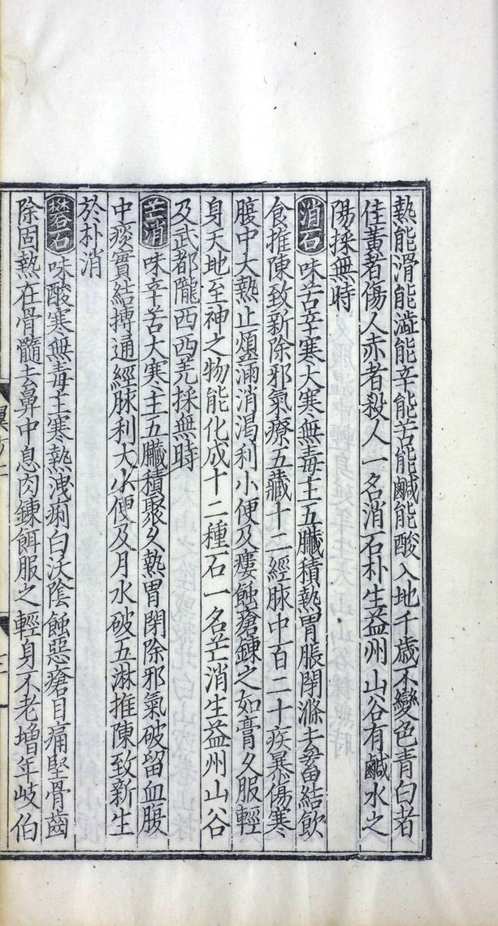 熱能滑能澁能辛能苦能鹹能酸入地千歳不變色青白者
佳黃者傷人赤者殺人一名消石朴生益州山谷有鹹水之
陽採無時
消石味苦辛寒大寒無毒主五臟積熱胃脹閉滌去畜結飲
食推陳致新除邪氣療五藏十二經脉中百二十疾暴傷寒
腹中大熱止煩滿消渴利小便及瘻蝕瘡鍊之如膏久服輕
身天地至神之物能化成十二種石一名芒消生益州山谷
及武都隴西西羌採無時
芒消味辛苦大寒主五臟積聚久熱胃閉除邪氣破留血腹
中痰實結搏通經脉利大小便及月水破五淋推陳致新生
於朴消
礬石味酸寒無毒主寒熱洩痢白沃陰蝕惡瘡目痛堅骨齒
除固熱在骨髓去鼻中息肉鍊餌服之輕身不老增年岐伯
翼方二